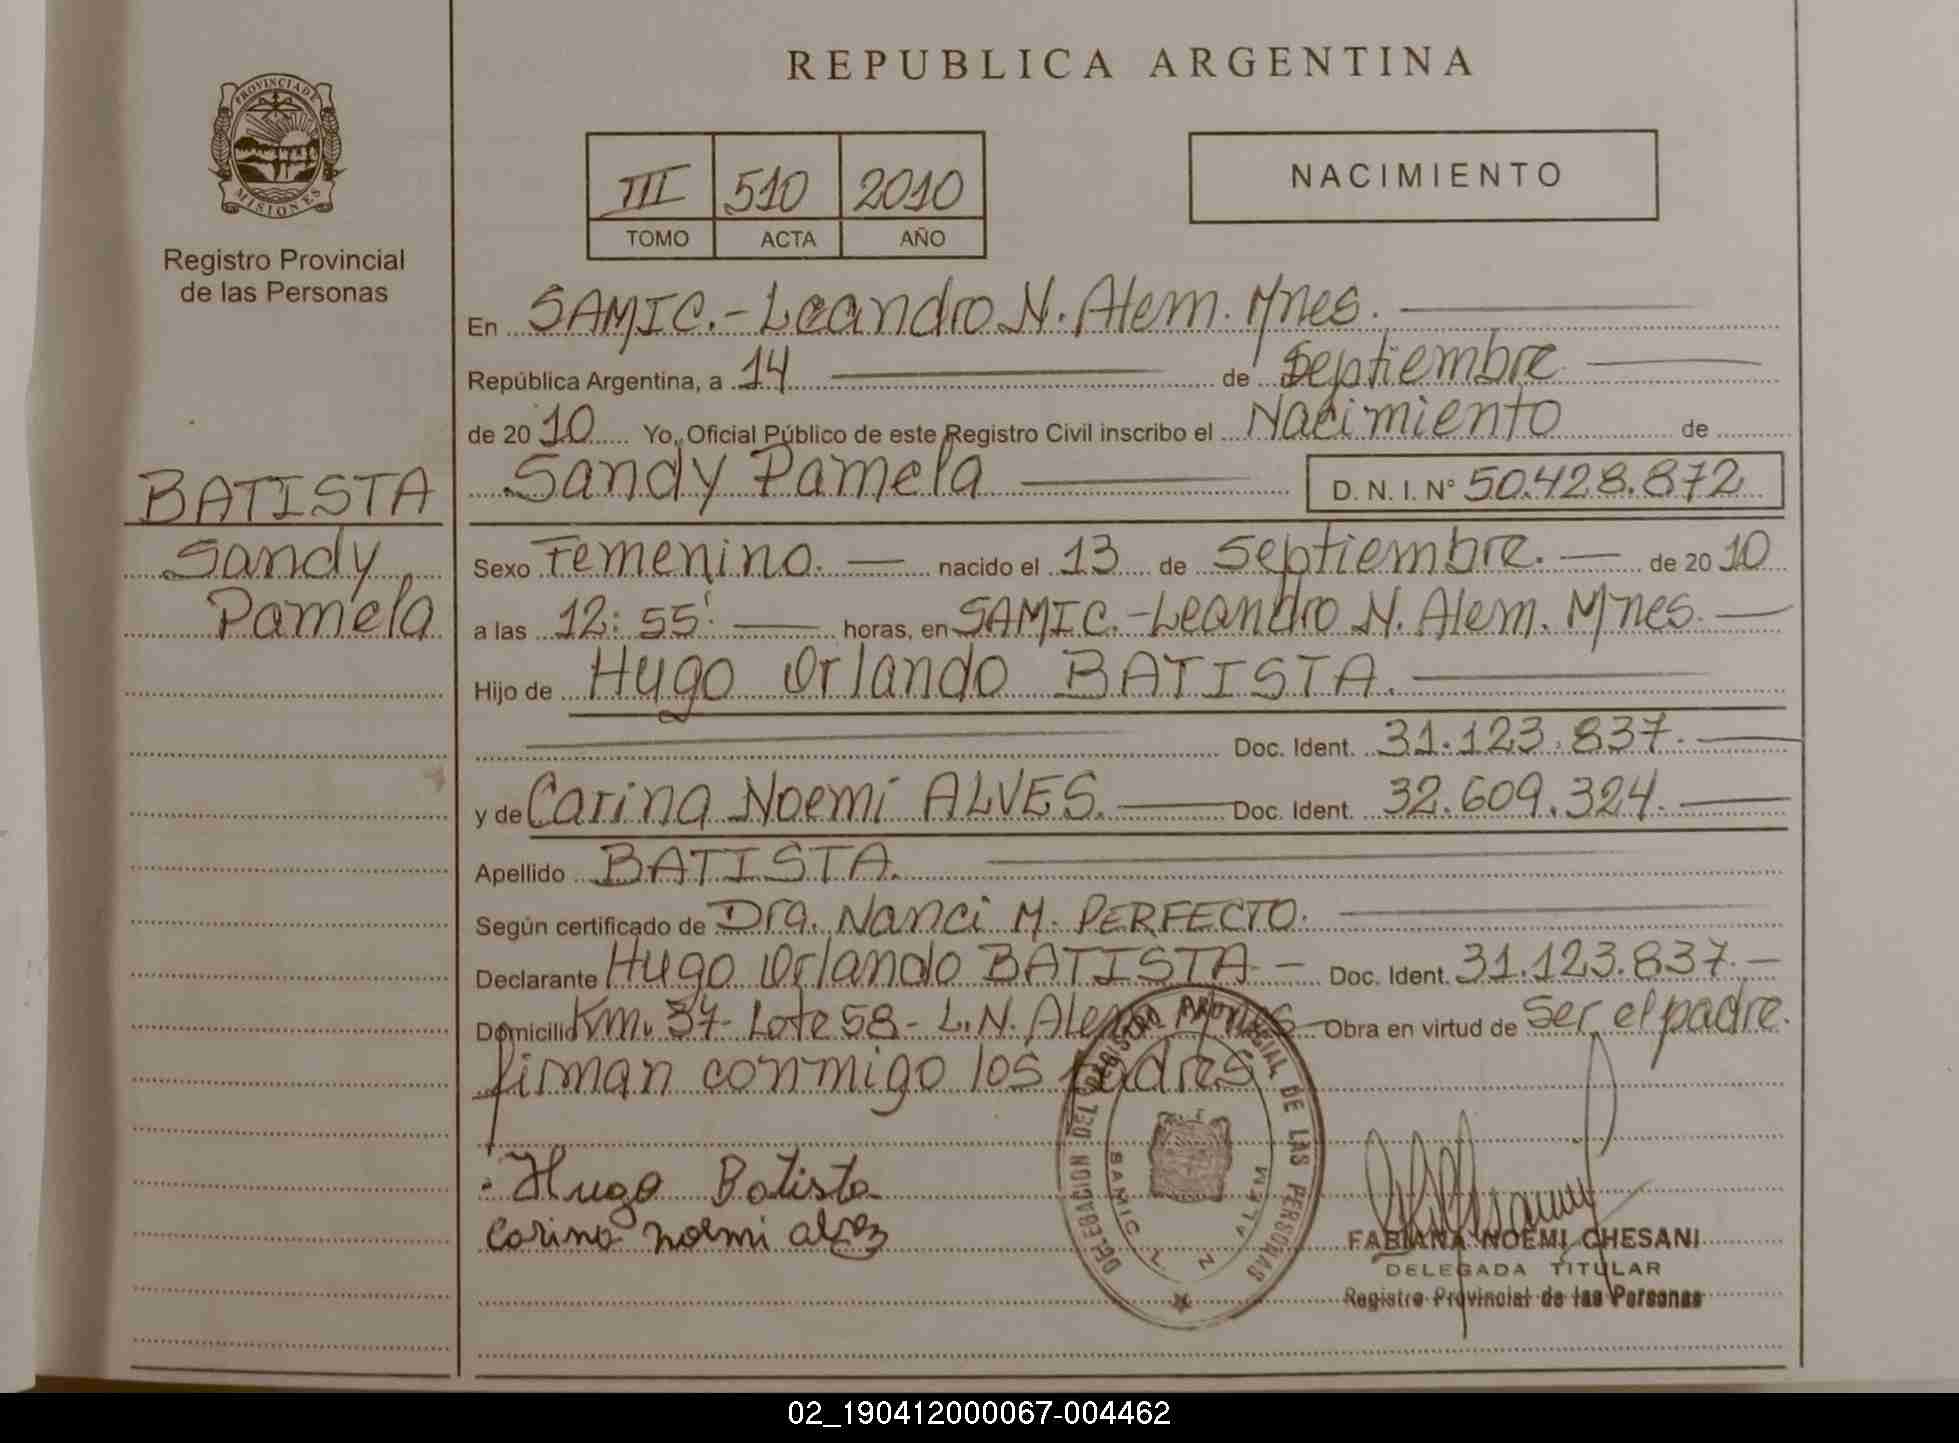 REPUBLICA ARGENTINA
PROVINCIA DE
MISIONES
Registro Provincial
de las Personas
III 510 2010
TOMO ACTA AÑO
NACIMIENTO
En SAMIC.-Leandro N. Alem. Mnes.
República Argentina, a 14 de Septiembre
de 2010 Yo, Oficial Público de este Registro Civil inscribo el Nacimiento de
Sandy Pamela D. N. I. N° 50.428.872
BATISTA
Sandy
Pamela
Sexo Femenino. nacido el 13 de Septiembre. de 2010
a las 12:55' horas, en SAMIC.-Leandro N. Alem. Mnes.
Hijo de Hugo Orlando BATISTA.
Doc. Ident. 31.123.837.
y de Carina Noemi ALVES. Doc. Ident. 32.609.324.
Apellido BATISTA.
Según certificado de Dra. Nanci M. PERFECTO.
Declarante Hugo Orlando BATISTA- Doc. Ident. 31.123.837.
Domicilio Km. 37- Lote 58- L.N. Alem Mnes Obra en virtud de Ser el padre.
firman conmigo los padres
Hugo Batista
Carina noemi alvez
DELEGACION DEL REGISTRO PROVINCIAL DE LAS PERSONAS
SAMIC L N ALEM
FABIANA NOEMI CHESANI
DELEGADA TITULAR
Registro Provincial de las Personas
02_190412000067-004462